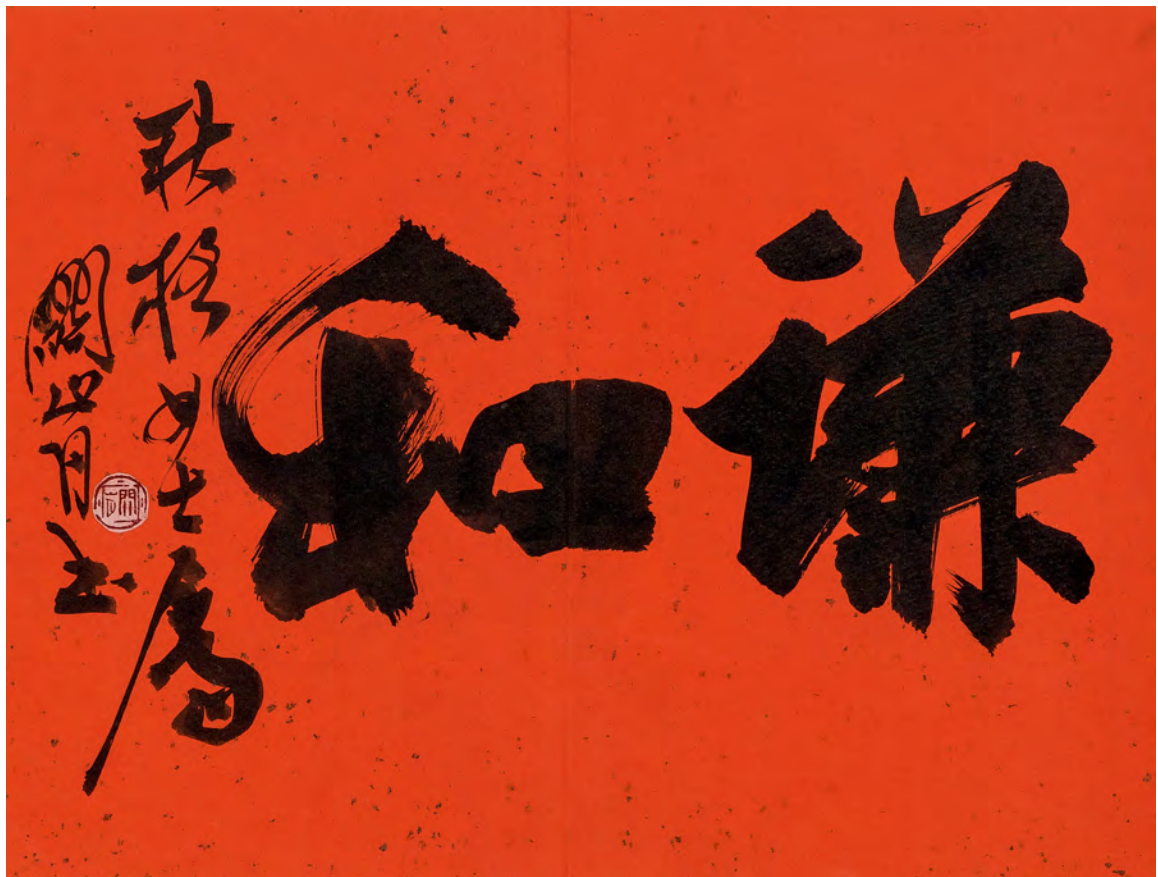 謙和
女士屬
關山月書